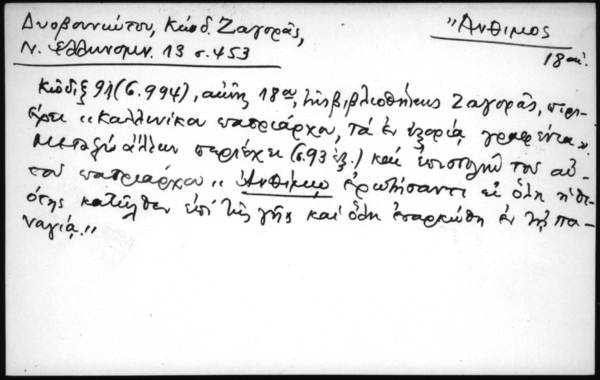 Δυοβουνιώτου, Κώδ. Ζαγορᾶς,
Ν. Ἑλληνομν. 13 σ. 453
"Ἄνθιμος
18 αἰ.
Κῶδιξ 91 (σ. 994), αἰῶν. 18ου, τῆς βιβλιοθήκης Ζαγορᾶς, περι-
έχει "Καλλινίκου πατριάρχου, τὰ ἐν ἐξορίᾳ γραφέντα".
Μεταξὺ ἄλλων περιέχει (σ. 93 ἑξ.) καὶ ἐπιστολὴν τοῦ αὐ-
τοῦ πατριάρχου "Ἀνθίμῳ ἐρωτήσαντι εἰ ὅλη ἡ θε-
ότης κατῆλθεν ἐπὶ τῆς γῆς καὶ ὅλη ἐσαρκώθη ἐν τῇ πα-
ναγίᾳ."